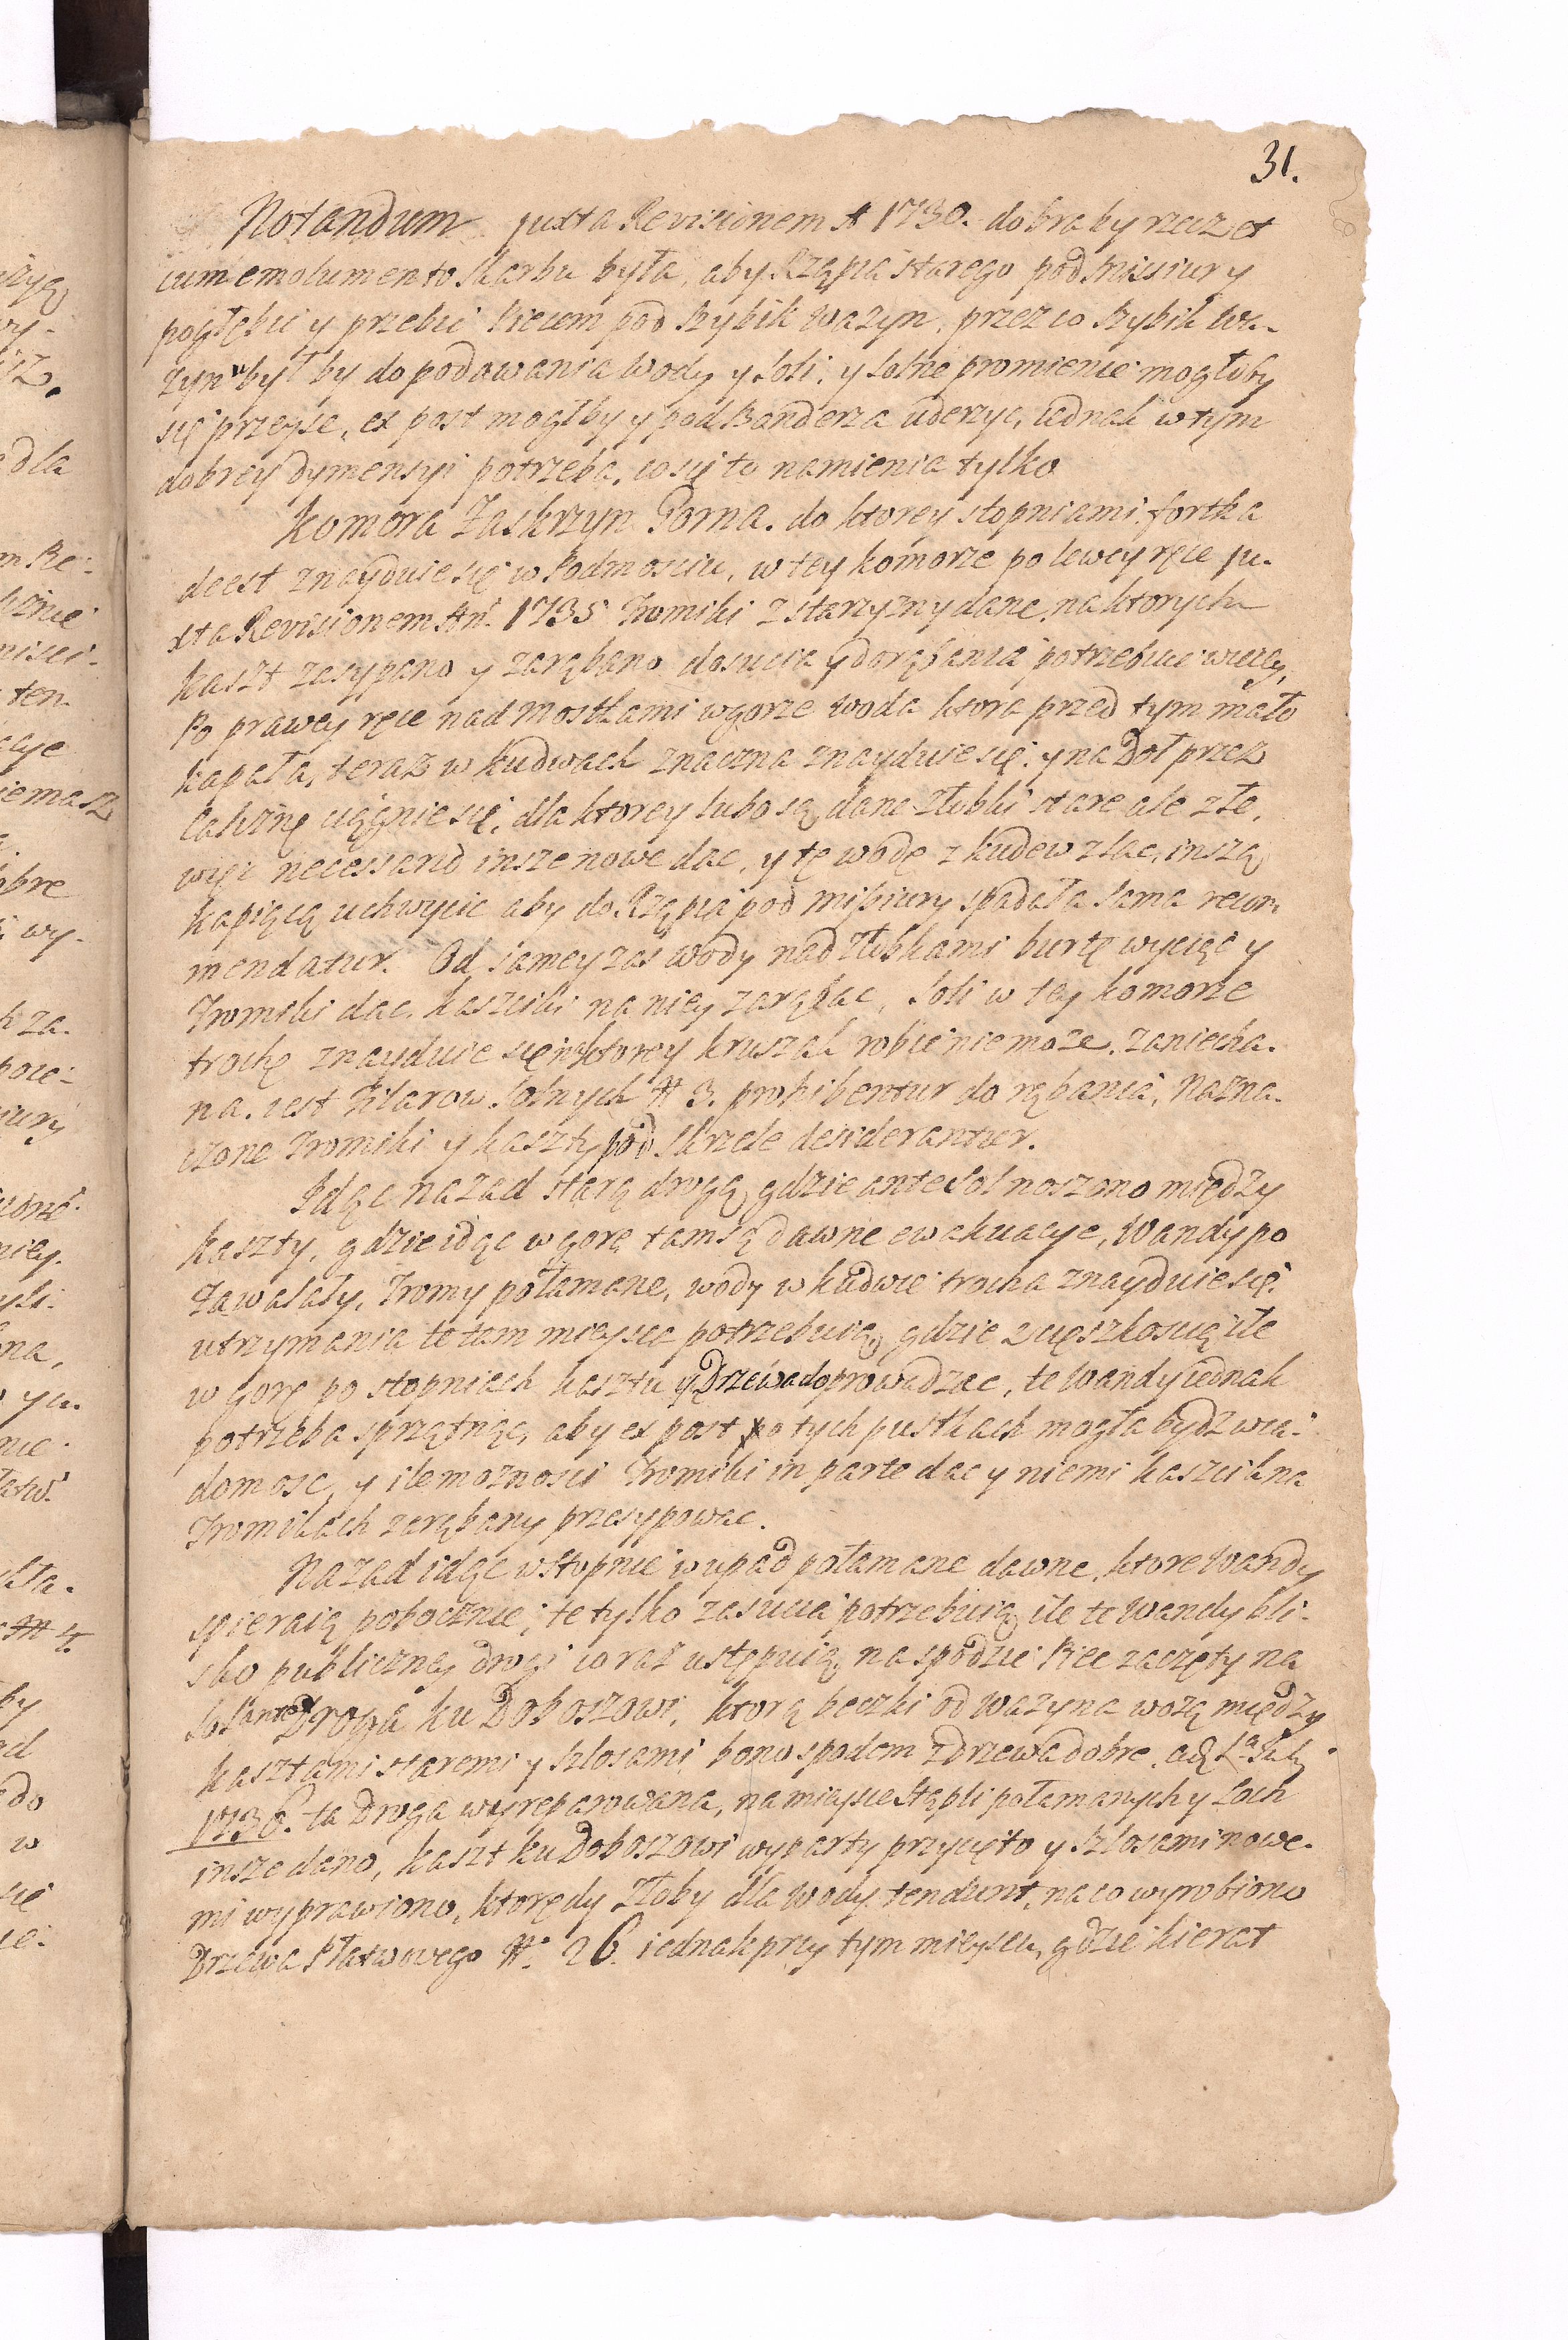 31.
Notandum juxta Revisionem A 1730. dobra by rzecz et
cum emolumento Skarbu była, aby Rząpia starego pod Misiury
pogłębić y przebić Piecem pod Szybik Wazyn, przez co Szybik Wa-
zyn byłby do podawania wody y Soli, y Solne promienie mogłyby
się przeyść, ex post mogłby y pod Banderza uderzyc, iednak w tym
dobrey dymensyi potrzeba, co się tu namienia tylko
Komora Zaskrzyn Gorna. do ktorey stopniami, fortka
deest znayduie się w Podmosciu, w tey komorze po lewey ręce ju-
xta Revisionem An. 1735 Tromiki z starzyzny dane, na ktorych
kaszt zasypano y zarąbano dosucia y dorąbania potrzebuie wiecey,
Po prawey ręce nad Mostkami w gorze woda ktora przed tym mało
kapała, teraz w kudwach znaczna znayduie się, y na Doł przez
Caliznę ciągnie się, dla ktorey lubo są dane Złobki stare ale złe,
więc necessario insze nowe dac, y tę wodę z kudew zlac, inszą
kapiącą uchwycic aby do Rząpia pod Misiury spadała sama recom-
mendatur. Od samey zas wody nad Złobkami burtę wyciąc y
Tromiki dac, kasziki na niey zarąbac, Soli w tey komorze
trochę znayduie się w ktorey kruszak robic nie moze, zaniecha-
na. iest Filarow Solnych N 3. prohibentur do rąbania, Nazna-
czone Tromiki y kaszty pod Skrzele desiderantur.
Idąc nazad starą drogą gdzie ante Sol noszono między
kaszty, gdzie idąc w gorę tam są dawne ewakuacye, Wandy po
zawalały, Tromy połamane, wody w kudwie trocha znayduie się.
utrzymania te tam mieysca potrzebuią, gdzie z cięszkoscią ile
w gorę po stopniach kasztu y Drzewa doprowadzac, te Wandy iednak
potrzeba sprzątnąc, aby ex post po tych pustkach mogła bydz wia-
domosc, y ile moznosci Tromiki in parte dac y niemi kaszcik na
Tromikach zarąbany przesypowac.
Nazad idąc w Stopnie w upad połamane dawne, ktore Wandy
spieraią pobocznie, te tylko zasucia potrzebuią ile te Wandy bli-
sko publiczney drogi coraz ustępuią, na spodzie Piec zaczęty na
Sol Droga ku Doboszowi, ktorą beczki od Wazyna wozą między
kasztami staremi y Szlosami, bono spodem z drzewa dobre,
1736. ta Droga wyreparowana, na mieysce Stępli połamanych y Soch
insze dano, kaszt ku Doboszowi wyparty przycięto y Szlosami nowe-
mi wyprawiono, ktorędy Złoby dla wody tendunt, na co wyrobiono
Drzewa Płatwowego N. 26. iednak przy tym mieyscu, gdzie kierat